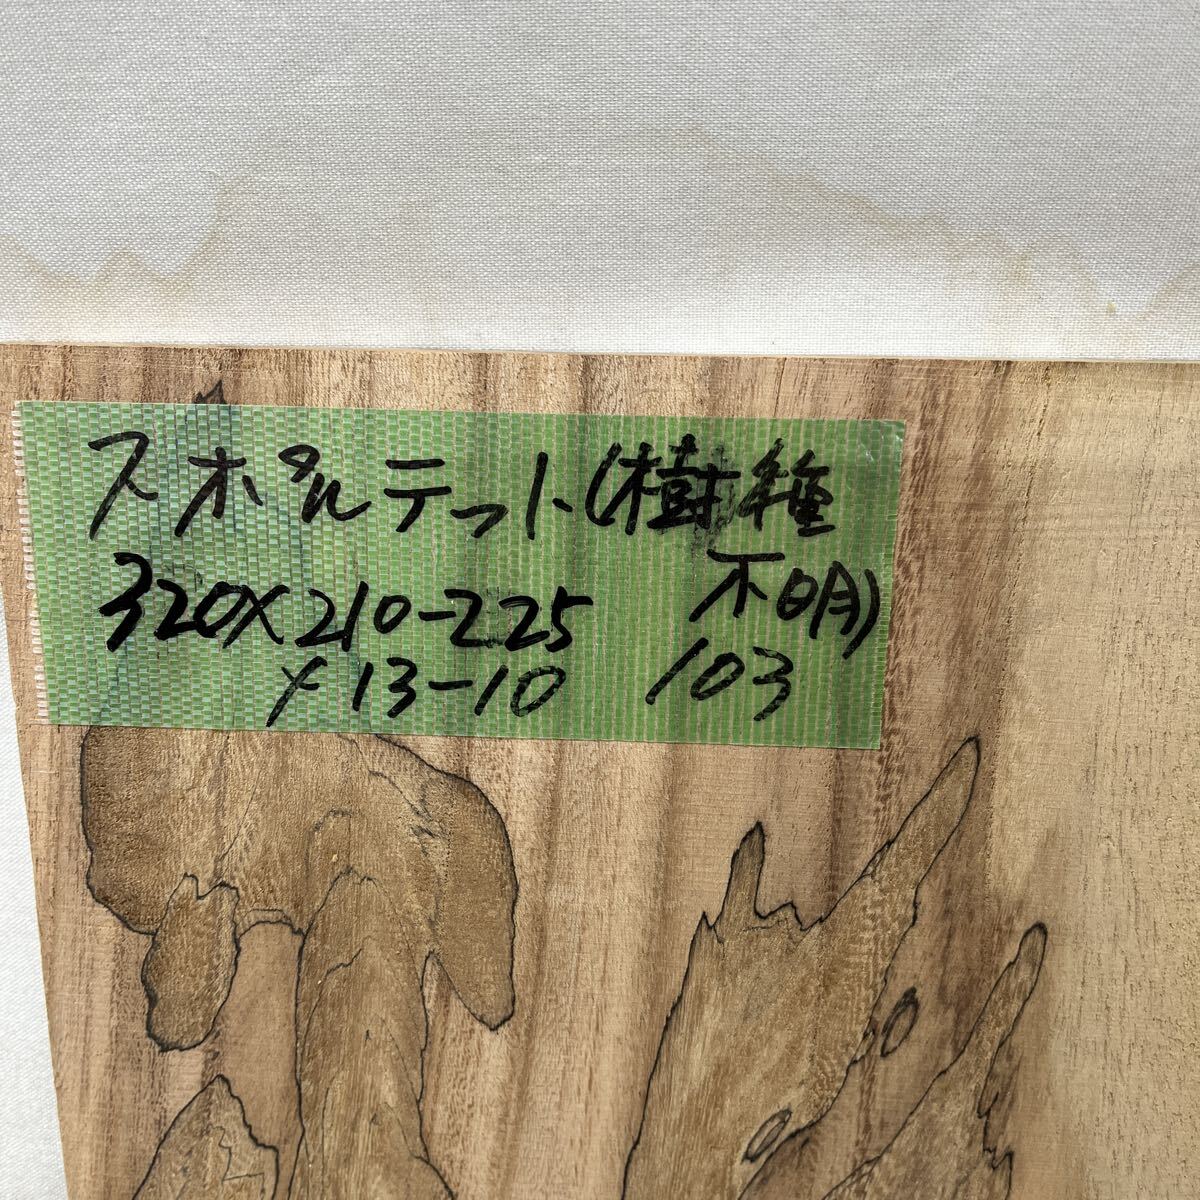 スポルテット(樹種
不明)
320×210-225
×13-10 103